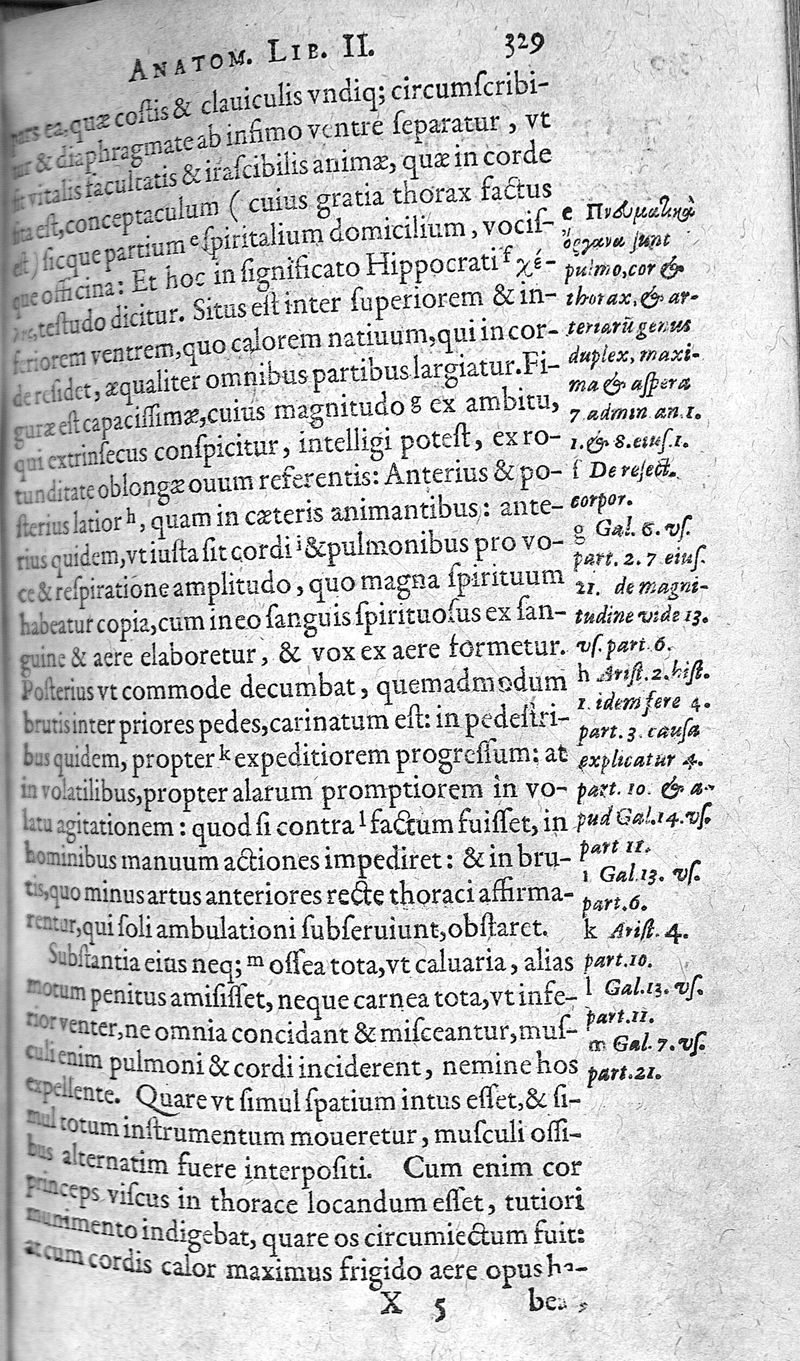 ANATOM. LIB. II. 329
pars ea, quæ coſtis & clauiculis vndiq; circumſcribi-
tur & diaphragmate ab infimo ventre ſeparatur, vt
ſit vitalis facultatis & iraſcibilis animæ, quæ in corde
ſita eſt, conceptaculum ( cuius gratia thorax factus
eſt) ſicque partium e ſpiritalium domicilium, vociſ-
que officina: Et hoc in ſignificato Hippocrati f χέ-
λυς, teſtudo dicitur. Situs eſt inter ſuperiorem & in-
feriorem ventrem, quo calorem natiuum, qui in cor-
de reſidet, æqualiter omnibus partibus largiatur. Fi-
guræ eſt capaciſſimæ, cuius magnitudo g ex ambitu,
qui extrinſecus conſpicitur, intelligi poteſt, ex ro-
tunditate oblongæ ouum referentis: Anterius & po-
ſterius latior h, quam in cæteris animantibus: ante-
rius quidem, vt iuſta ſit cordi i & pulmonibus pro vo-
ce & reſpiratione amplitudo, quo magna ſpirituum
habeatur copia, cum in eo ſanguis ſpirituoſus ex ſan-
guine & aere elaboretur, & vox ex aere formetur.
Poſterius vt commode decumbat, quemadmodum
brutis inter priores pedes, carinatum eſt: in pedeſtri-
bus quidem, propter k expeditiorem progreſſum: at
in volatilibus, propter alarum promptiorem in vo-
latu agitationem: quod ſi contra l factum fuiſſet, in
hominibus manuum actiones impediret: & in bru-
tis, quo minus artus anteriores recte thoraci affirma-
rentur, qui ſoli ambulationi ſubſeruiunt, obſtaret.
Subſtantia eius neq; m oſſea tota, vt caluaria, alias
motum penitus amiſiſſet, neque carnea tota, vt infe-
rior venter, ne omnia concidant & miſceantur, muſ-
culi enim pulmoni & cordi inciderent, nemine hos
expellente. Quare vt ſimul ſpatium intus eſſet, & ſi-
mul totum inſtrumentum moueretur, muſculi oſſi-
bus alternatim fuere interpoſiti. Cum enim cor
princeps viſcus in thorace locandum eſſet, tutiori
munimento indigebat, quare os circumiectum fuit:
at cum cordis calor maximus frigido aere opus ha-
X 5 bea
e Πνδυματικὰ
ὄργανα ſunt
pulmo, cor &
thorax, & ar-
teriarũ genus
duplex, maxi-
ma & aſpera
7 admin an. 1.
1. & 8. eiuſ. 1.
f De reſect.
corpor.
g Gal. 6. vſ.
part. 2. 7 eiuſ.
21. de magni-
tudine vide 13.
vſ. part. 6.
h Ariſt. 2. hiſt.
1. idem fere 4.
part. 3. cauſa
explicatur 4.
part. 10. & a-
pud Gal. 14. vſ.
part 11.
i Gal. 13. vſ.
part. 6.
k Ariſt. 4.
part. 10.
l Gal. 13. vſ.
part. 11.
m Gal. 7. vſ.
part. 21.